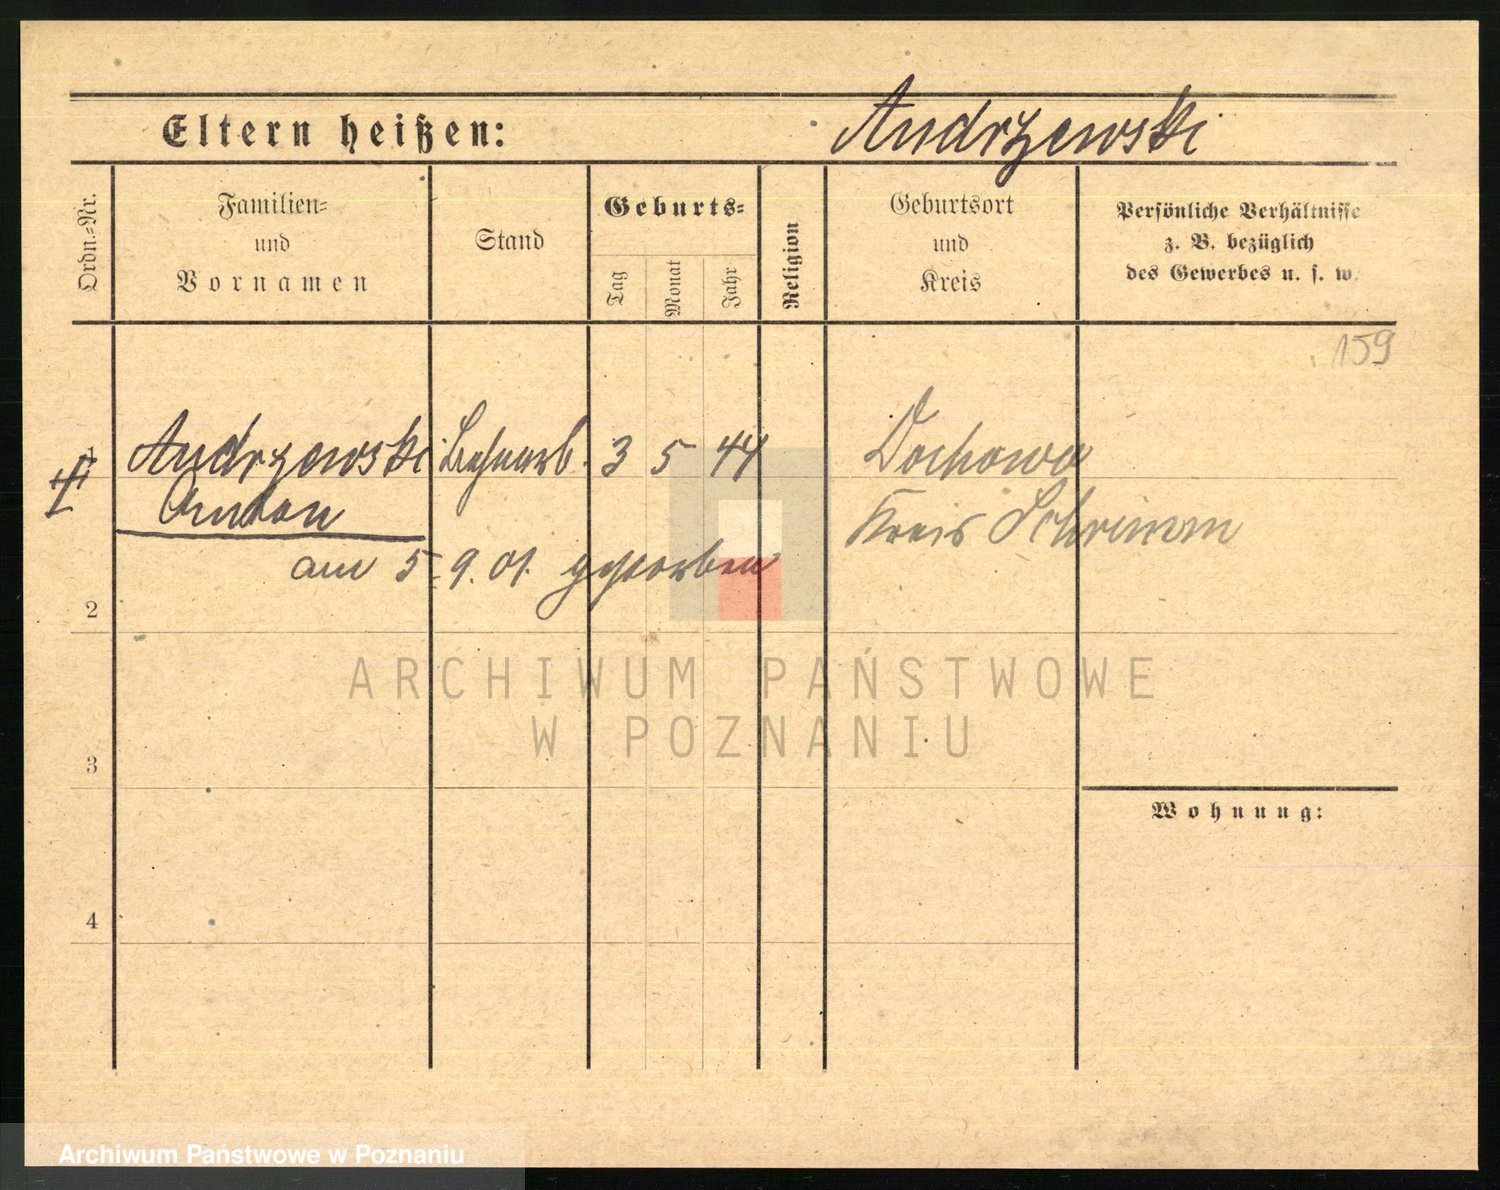 Eltern heißen: Andrzewski
Ordn.=Nr.
Familien=
und
Vornamen
Stand
Geburts=
Tag
Monat
Jahr
Religion
Geburtsort
und
Kreis
Persönliche Verhältnisse
z. B. bezüglich
des Gewerbes u. s. w.
159
1 Andrzewski 3 5 44 Dochowo
Anton Kreis Schrimm
am 5.9.01. gestorben
2
ARCHIWUM PAŃSTWOWE
W POZNANIU
3
Wohnung:
4
Archiwum Państwowe w Poznaniu